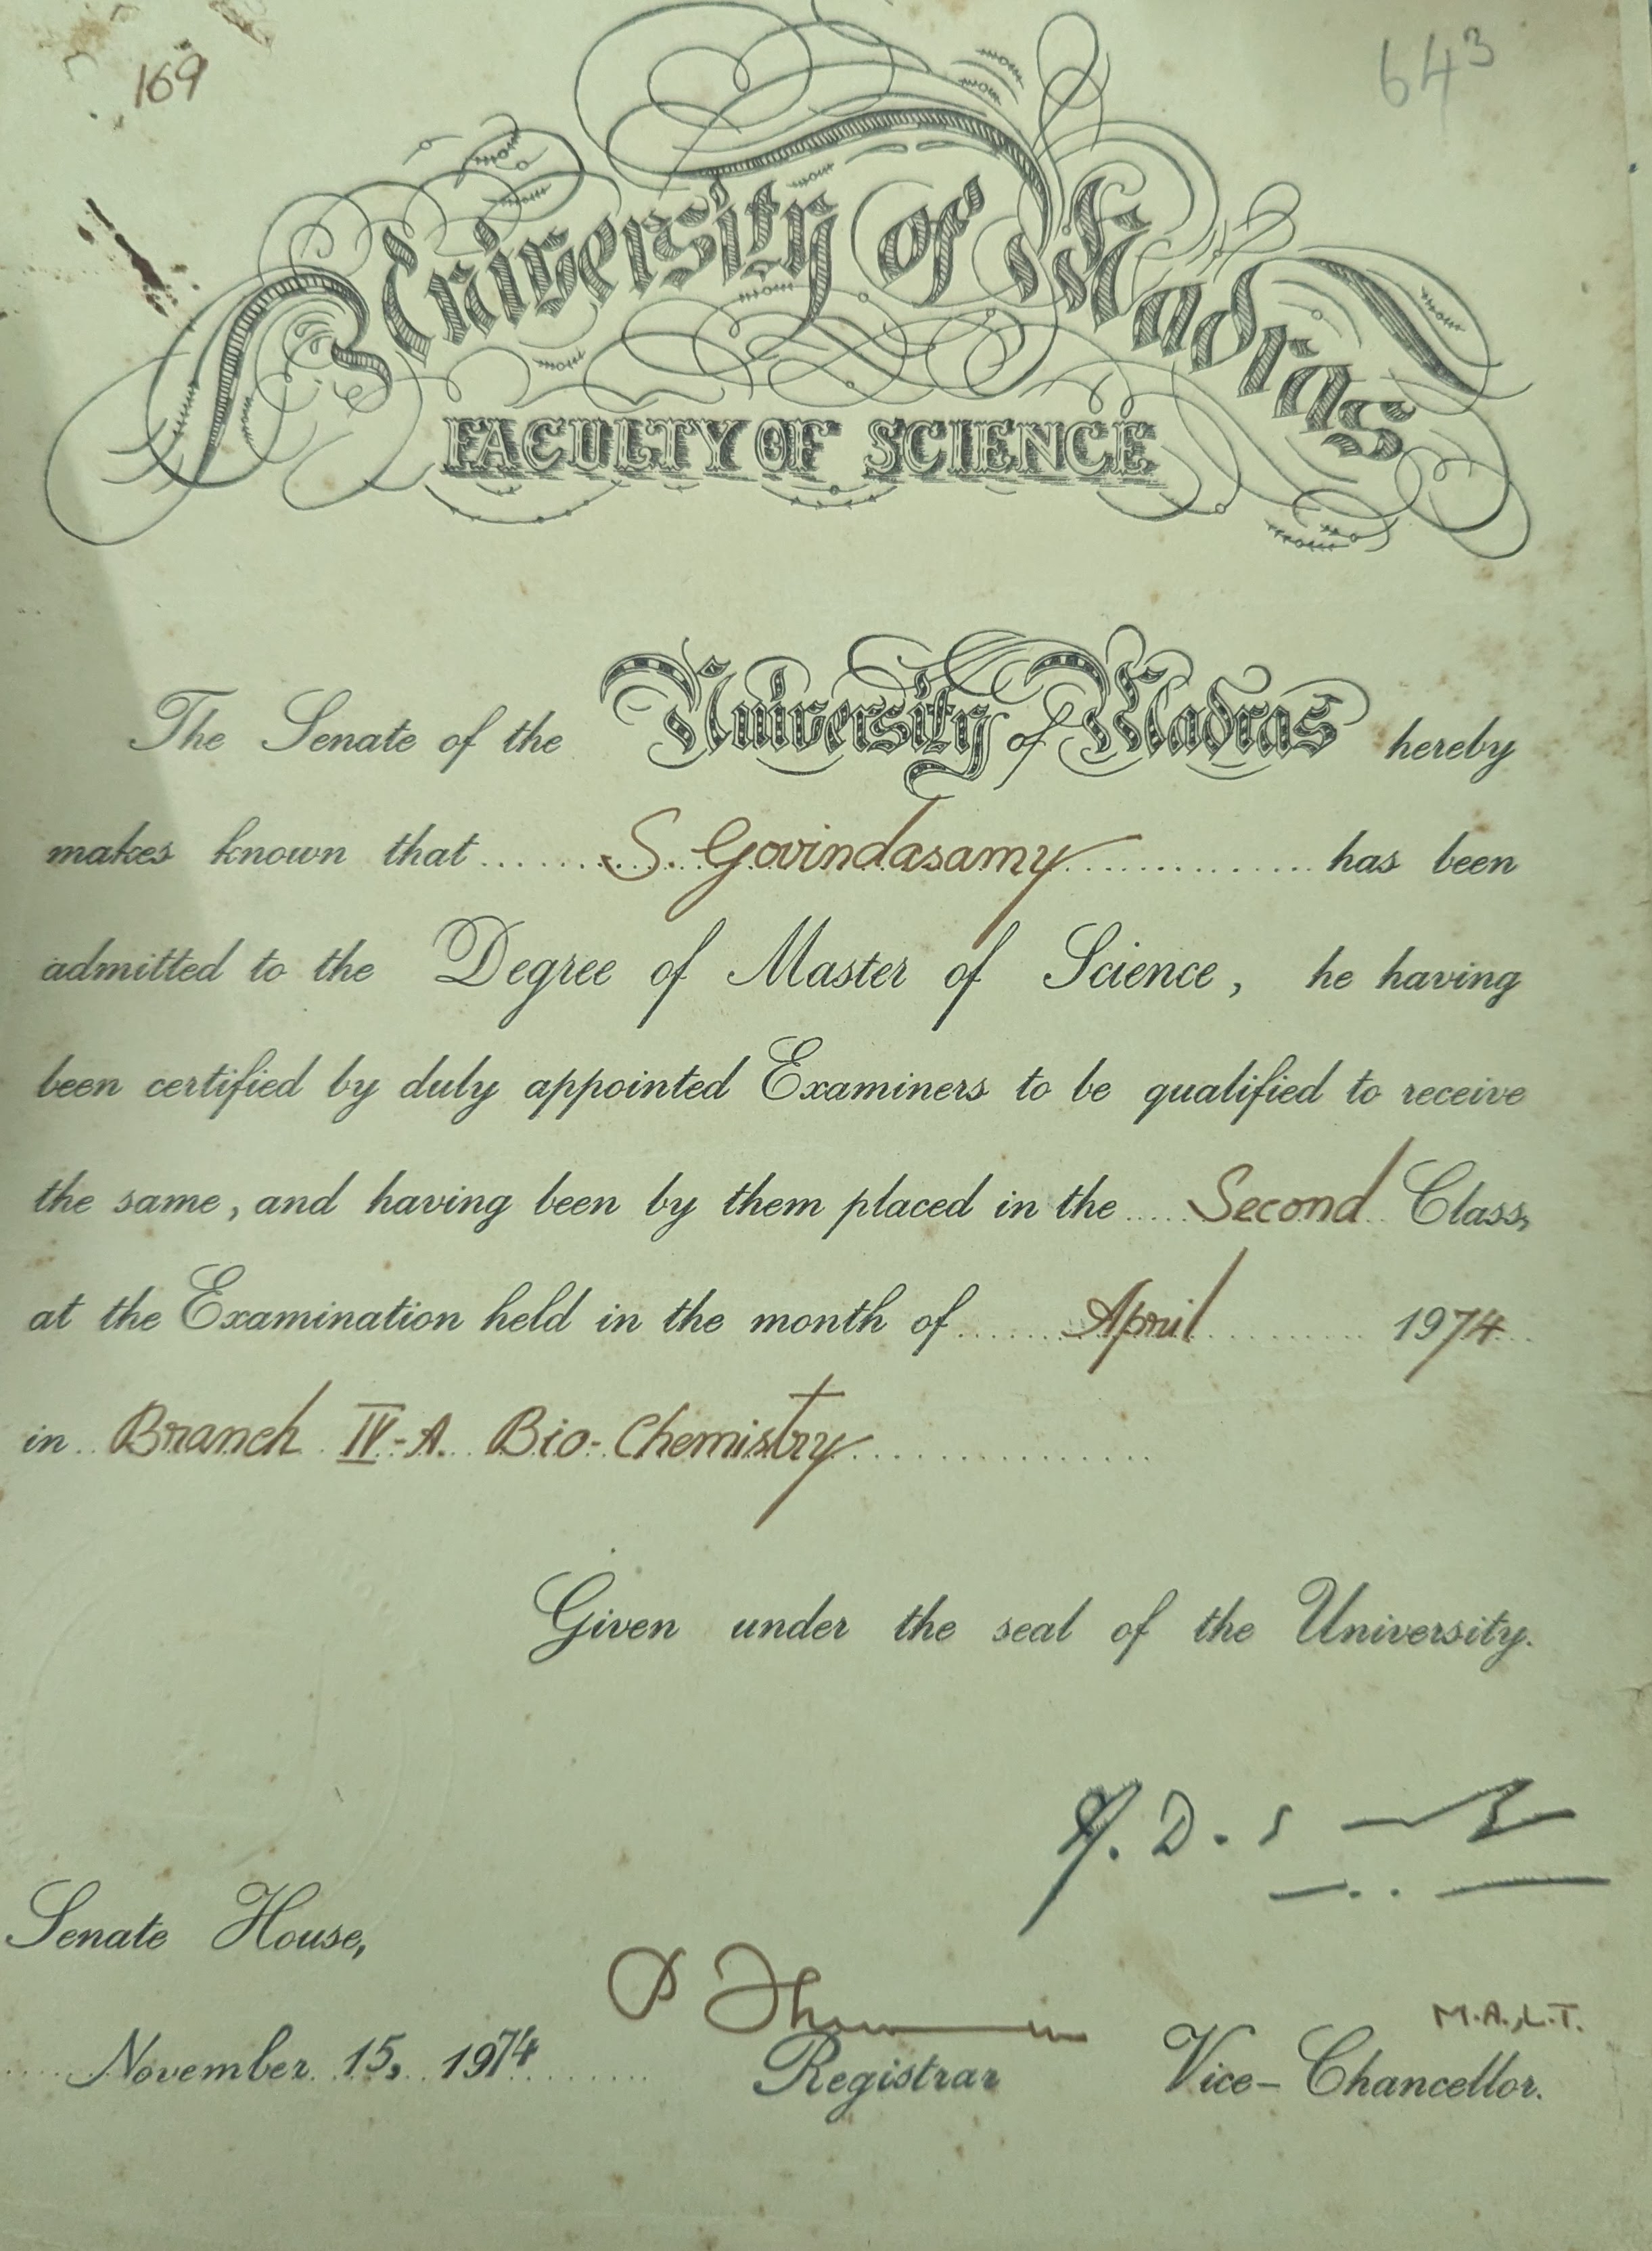 169
643
University of Madras
FACULTY OF SCIENCE
The Senate of the University of Madras hereby
makes known that S. Govindasamy has been
admitted to the Degree of Master of Science, he having
been certified by duly appointed Examiners to be qualified to receive
the same, and having been by them placed in the Second Class,
at the Examination held in the month of April 1974
in Branch IV-A. Bio-Chemistry
Given under the seal of the University.
Senate House,
M.A., L.T.
November 15, 1974 Registrar Vice-Chancellor.